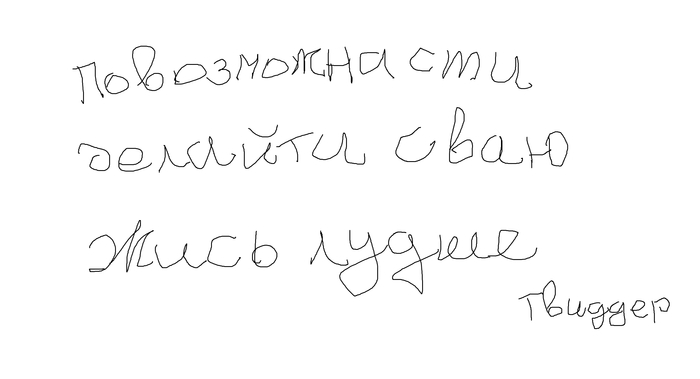 Повозможнасти
делийти сваю
жись лудше
Твиддер